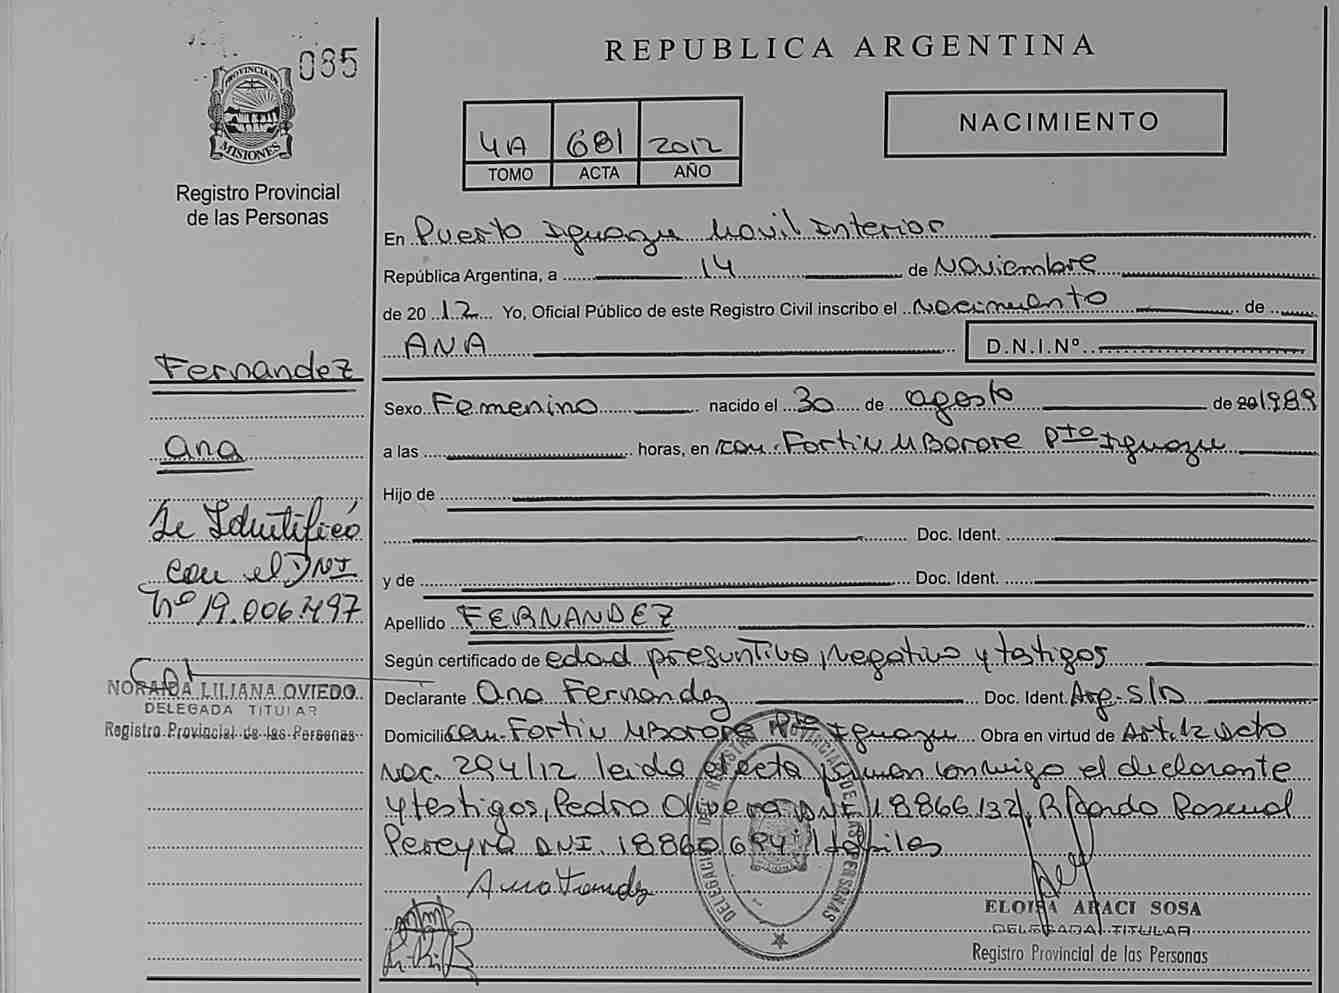 085
PROVINCIA DE
MISIONES
Registro Provincial
de las Personas
REPUBLICA ARGENTINA
NACIMIENTO
4A 681 2012
TOMO ACTA AÑO
En Puerto Iguazu Movil Interior
República Argentina, a 14 de Noviembre
de 2012 Yo, Oficial Público de este Registro Civil inscribo el Nacimiento de
ANA D.N.I.Nº
Sexo Femenino nacido el 30 de agosto de 20 1989
a las horas, en com. Fortin M Borore Pto Iguazu
Hijo de
Doc. Ident.
y de Doc. Ident.
Apellido FERNANDEZ
Según certificado de edad presuntiva, Negativo y testigos
Declarante Ana Fernandez Doc. Ident. Arg. S/D
Domicilio com. Fortin M Borore Pto Iguazu Obra en virtud de Art. 12 Dcto
Nac. 294/12 leida el acta firman conmigo el declarante
y testigos, Pedro Olivera DNI 18866.132, Ricardo Pascual
Pereyra DNI. 18860.694 Habiles
Fernandez
Ana
Se Identificó
con el DNI
Nº 19.006.497
NORAIDA LILIANA OVIEDO
DELEGADA TITULAR
Registro Provincial de las Personas
DELEGACION DEL REGISTRO PROVINCIAL DE LAS PERSONAS
ELOISA ARACI SOSA
DELEGADA TITULAR
Registro Provincial de las Personas